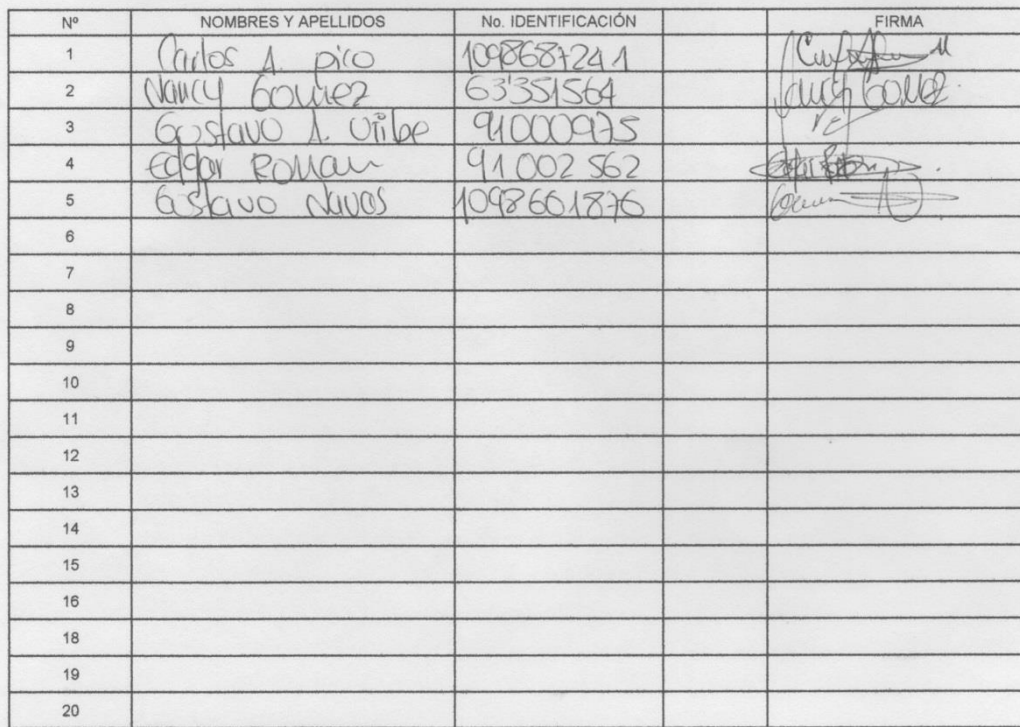 Nº NOMBRES Y APELLIDOS No. IDENTIFICACIÓN FIRMA
1 Carlos A. pico 1098687241
2 Nancy Gomez 63351564 Nancy GOMEZ
3 Gostavo A. Uribe 91000975
4 Edgar Roman 91 002 562
5 Gostavo Navas 1098601876
6
7
8
9
10
11
12
13
14
15
16
18
19
20